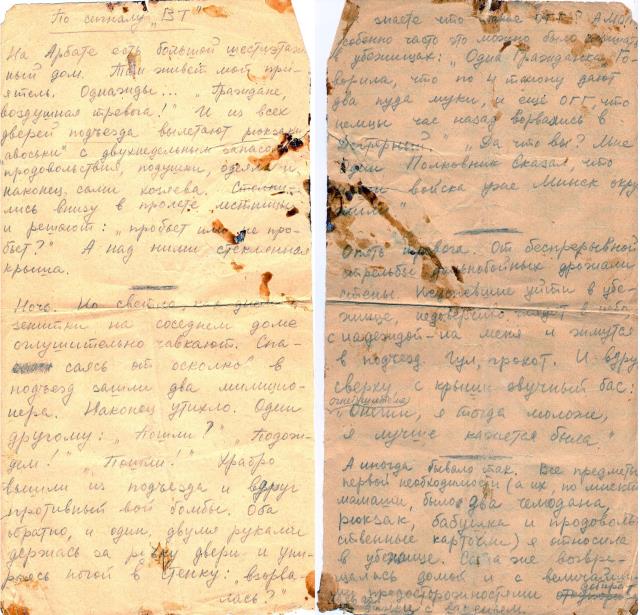 По сигналу „ВТ"
На Арбате есть большой шестиэтаж-
ный дом. Там живет мой при-
ятель. Однажды... „Граждане,
воздушная тревога!" И из всех
дверей подъезда вылетают рюкзаки,
„авоськи" с двухнедельным запасом
продовольствия, подушки, одеяла и
наконец сами хозяева.
лись внизу в пролете лестницы
и решают: „пробьет или не про-
бьет?" А над ними стеклянная
крыша.
Ночь. Но светло как днем
зенитки на соседнем доме
оглушительно чавкают. Спа-
саясь от осколков в
подъезд зашли два милицио-
нера. Наконец утихло. Один
другому: „Пошли?" „Подож-
дем!" „Пошли!" Храбро
вышли из подъезда и вдруг
противный вой бомбы. Оба
обратно, и один, двумя руками
держась за ручку двери и упи-
раясь ногой в стенку: „взорва
лась?"
знаете что такое ОГГ
собенно часто это можно было слышать
убежищах: „Одна Гражданка Го-
ворила, что по 4 талону дают
два пуда муки, и ещё ОГГ, что
немцы час назад ворвались в
„Да что вы? Мне
один Полковник сказал, что
наши войска уже Минск окру
жили"
Опять тревога. От беспрерывной
стрельбы дальнобойных дрожали
стены. Неуспевшие уйти в убе-
жище, недоверчиво глядят в небо
с надеждой-на меня и жмутся
в подъезд. Гул, грохот. И вдруг
сверху с крыши звучный бас:
„Онегин, я тогда моложе,
я лучше кажется была"
А иногда бывало так. Все предметы
первой необходимости (а их, по мнению
мамаши, было два чемодана,
рюкзак, бабушка и продоволь
ственные карточки) я относила
в убежище. Сама же возвра-
щалась домой и с величайши-
ми предосторожностями